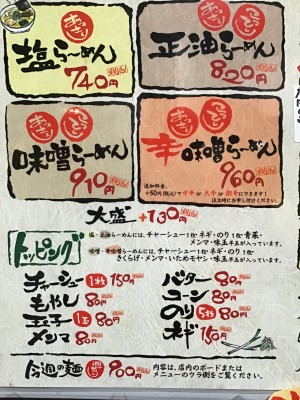 あっさり
塩らーめん
740円
あっさり
こってり
正油らーめん
820円
あっさり
こってり
味噌らーめん
910円
あっさり
こってり
辛味噌らーめん
960円
追加料金、
+50円(税込)で中辛 or 大辛 or 激辛にできます!
注文時にお申し付けください。
大盛 +130円
トッピング
塩・正油らーめんには、チャーシュー1枚・ネギ・のり1枚・青菜・
メンマ・味玉半玉が入っています。
味噌・辛味噌らーめんには、チャーシュー1枚・ネギ・のり1枚・
きくらげ・メンマ・いためモヤシ・味玉半玉が入っています。
チャーシュー 1枚 150円
もやし 80円
玉子 1玉 80円
メンマ 80円
バター 80円
コーン 80円
のり 5枚 80円
ネギ 150円
今週の麺 900円
内容は、店内のボードまたは
メニューのウラ側をご覧ください。